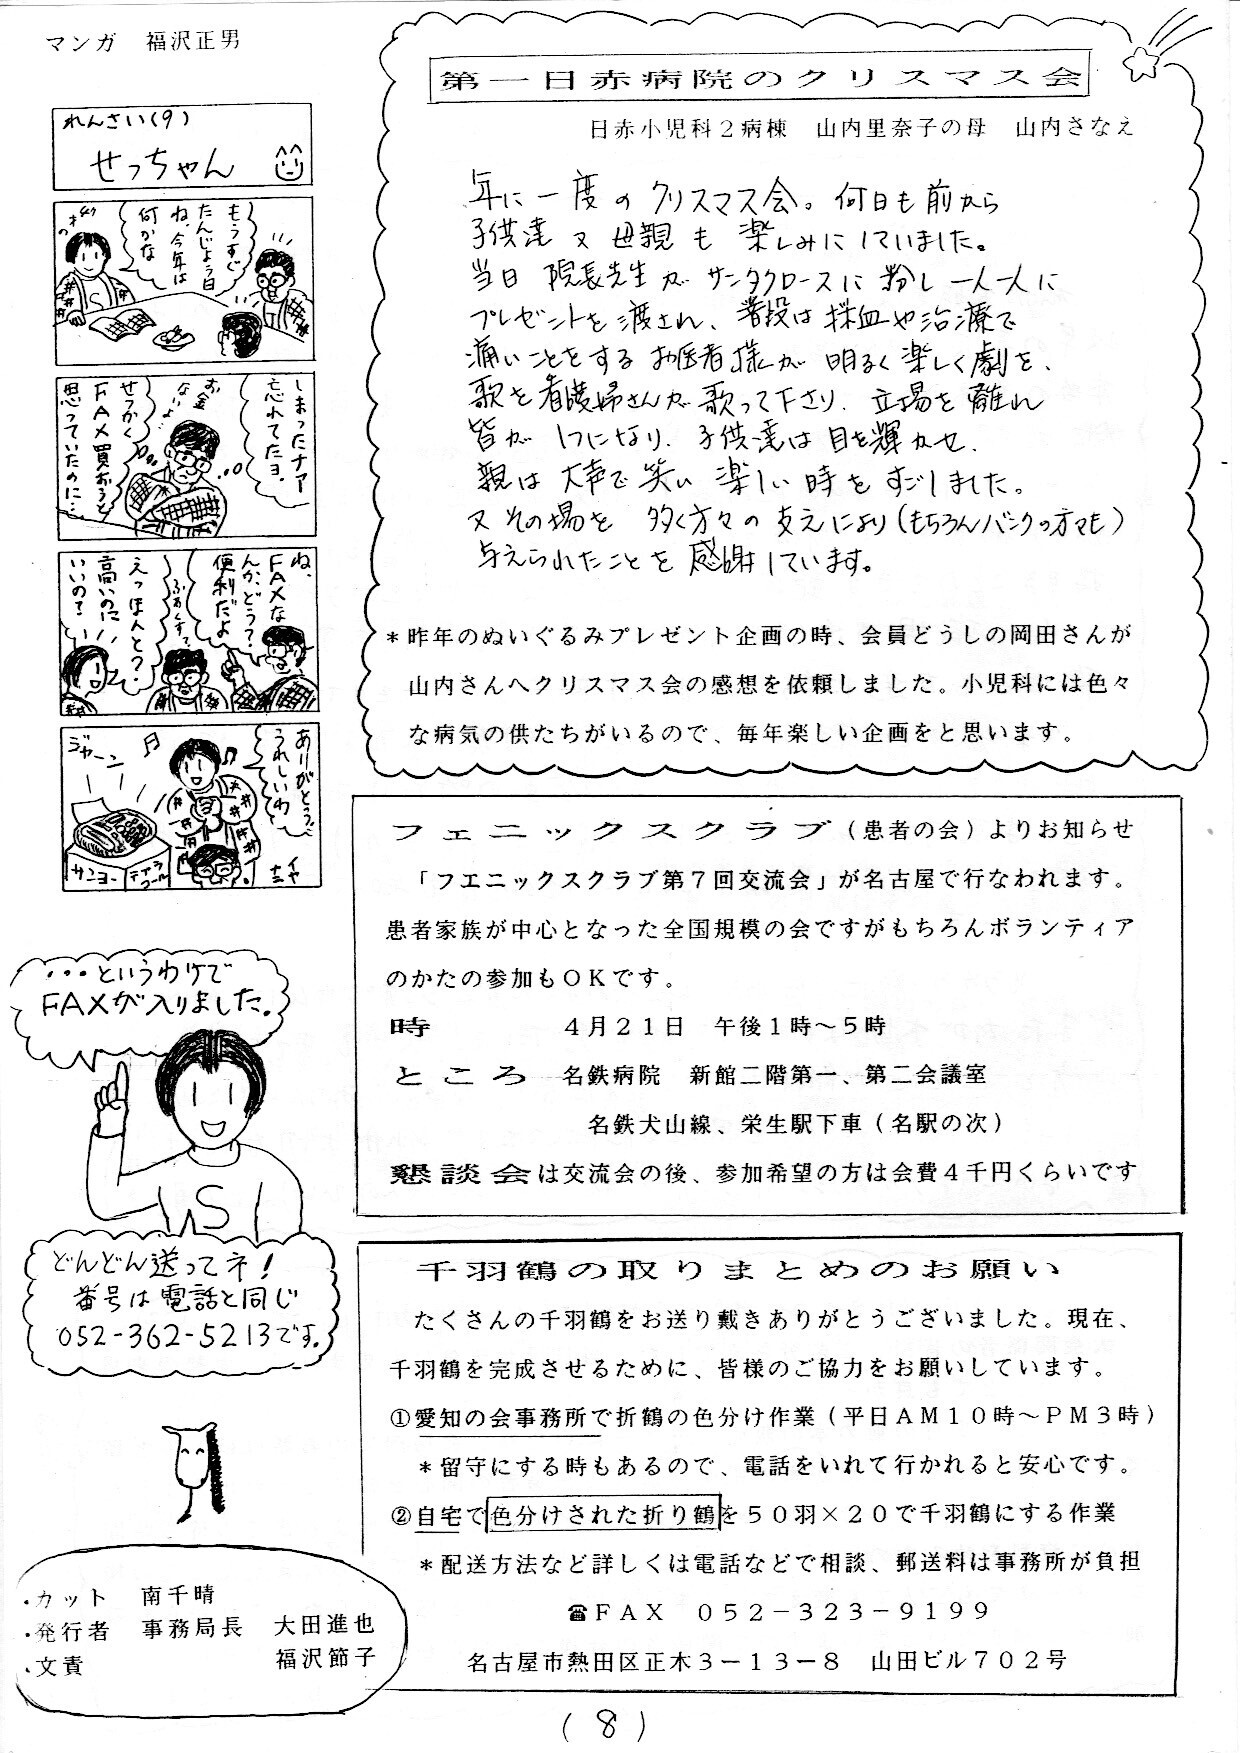 マンガ　福沢正男
れんさい(9)
せっちゃん
もうすぐ
たんじょう日
ね、今年は
何かな
しまったナアー
忘れてたヨ。
お金
ないよ
せっかく
FAX買おうと
思っていたのに…
ね、
FAXな
んか、どう?
便利だよ
ふぁっくす?
えっほんと?
高いのに
いいの?
ありがとう!
うれしいわ
ジャーン
サンヨー
テ・ブラ
コール
・・・というわけで
FAXが入りました。
どんどん送ってネ!
番号は電話と同じ
052-362-5213です。
・カット　南千晴
・発行者　事務局長　大田進也
・文責　福沢節子
第一日赤病院のクリスマス会
日赤小児科2病棟　山内里奈子の母　山内さなえ
年に一度のクリスマス会。何日も前から
子供達又母親も楽しみにしていました。
当日院長先生がサンタクロースに扮し一人一人に
プレゼントを渡され、普段は採血や治療で
痛いことをするお医者様が明るく楽しく劇を、
歌を看護婦さんが歌って下さり、立場を離れ
皆が1つになり、子供達は目を輝かせ、
親は大声で笑い楽しい時をすごしました。
又その場を多く方々の支えにより(もちろんバンクの方々も)
与えられたことを感謝しています。
*昨年のぬいぐるみプレゼント企画の時、会員どうしの岡田さんが
山内さんへクリスマス会の感想を依頼しました。小児科には色々
な病気の供たちがいるので、毎年楽しい企画をと思います。
フェニックスクラブ(患者の会)よりお知らせ
「フエニックスクラブ第7回交流会」が名古屋で行なわれます。
患者家族が中心となった全国規模の会ですがもちろんボランティア
のかたの参加もOKです。
時　4月21日　午後1時〜5時
ところ　名鉄病院　新館二階第一、第二会議室
名鉄犬山線、栄生駅下車(名駅の次)
懇談会は交流会の後、参加希望の方は会費4千円くらいです
千羽鶴の取りまとめのお願い
たくさんの千羽鶴をお送り戴きありがとうございました。現在、
千羽鶴を完成させるために、皆様のご協力をお願いしています。
①愛知の会事務所で折鶴の色分け作業(平日AM10時〜PM3時)
*留守にする時もあるので、電話をいれて行かれると安心です。
②自宅で色分けされた折り鶴を50羽×20で千羽鶴にする作業
*配送方法など詳しくは電話などで相談、郵送料は事務所が負担
☎FAX　052-323-9199
名古屋市熱田区正木3-13-8　山田ビル702号
(8)